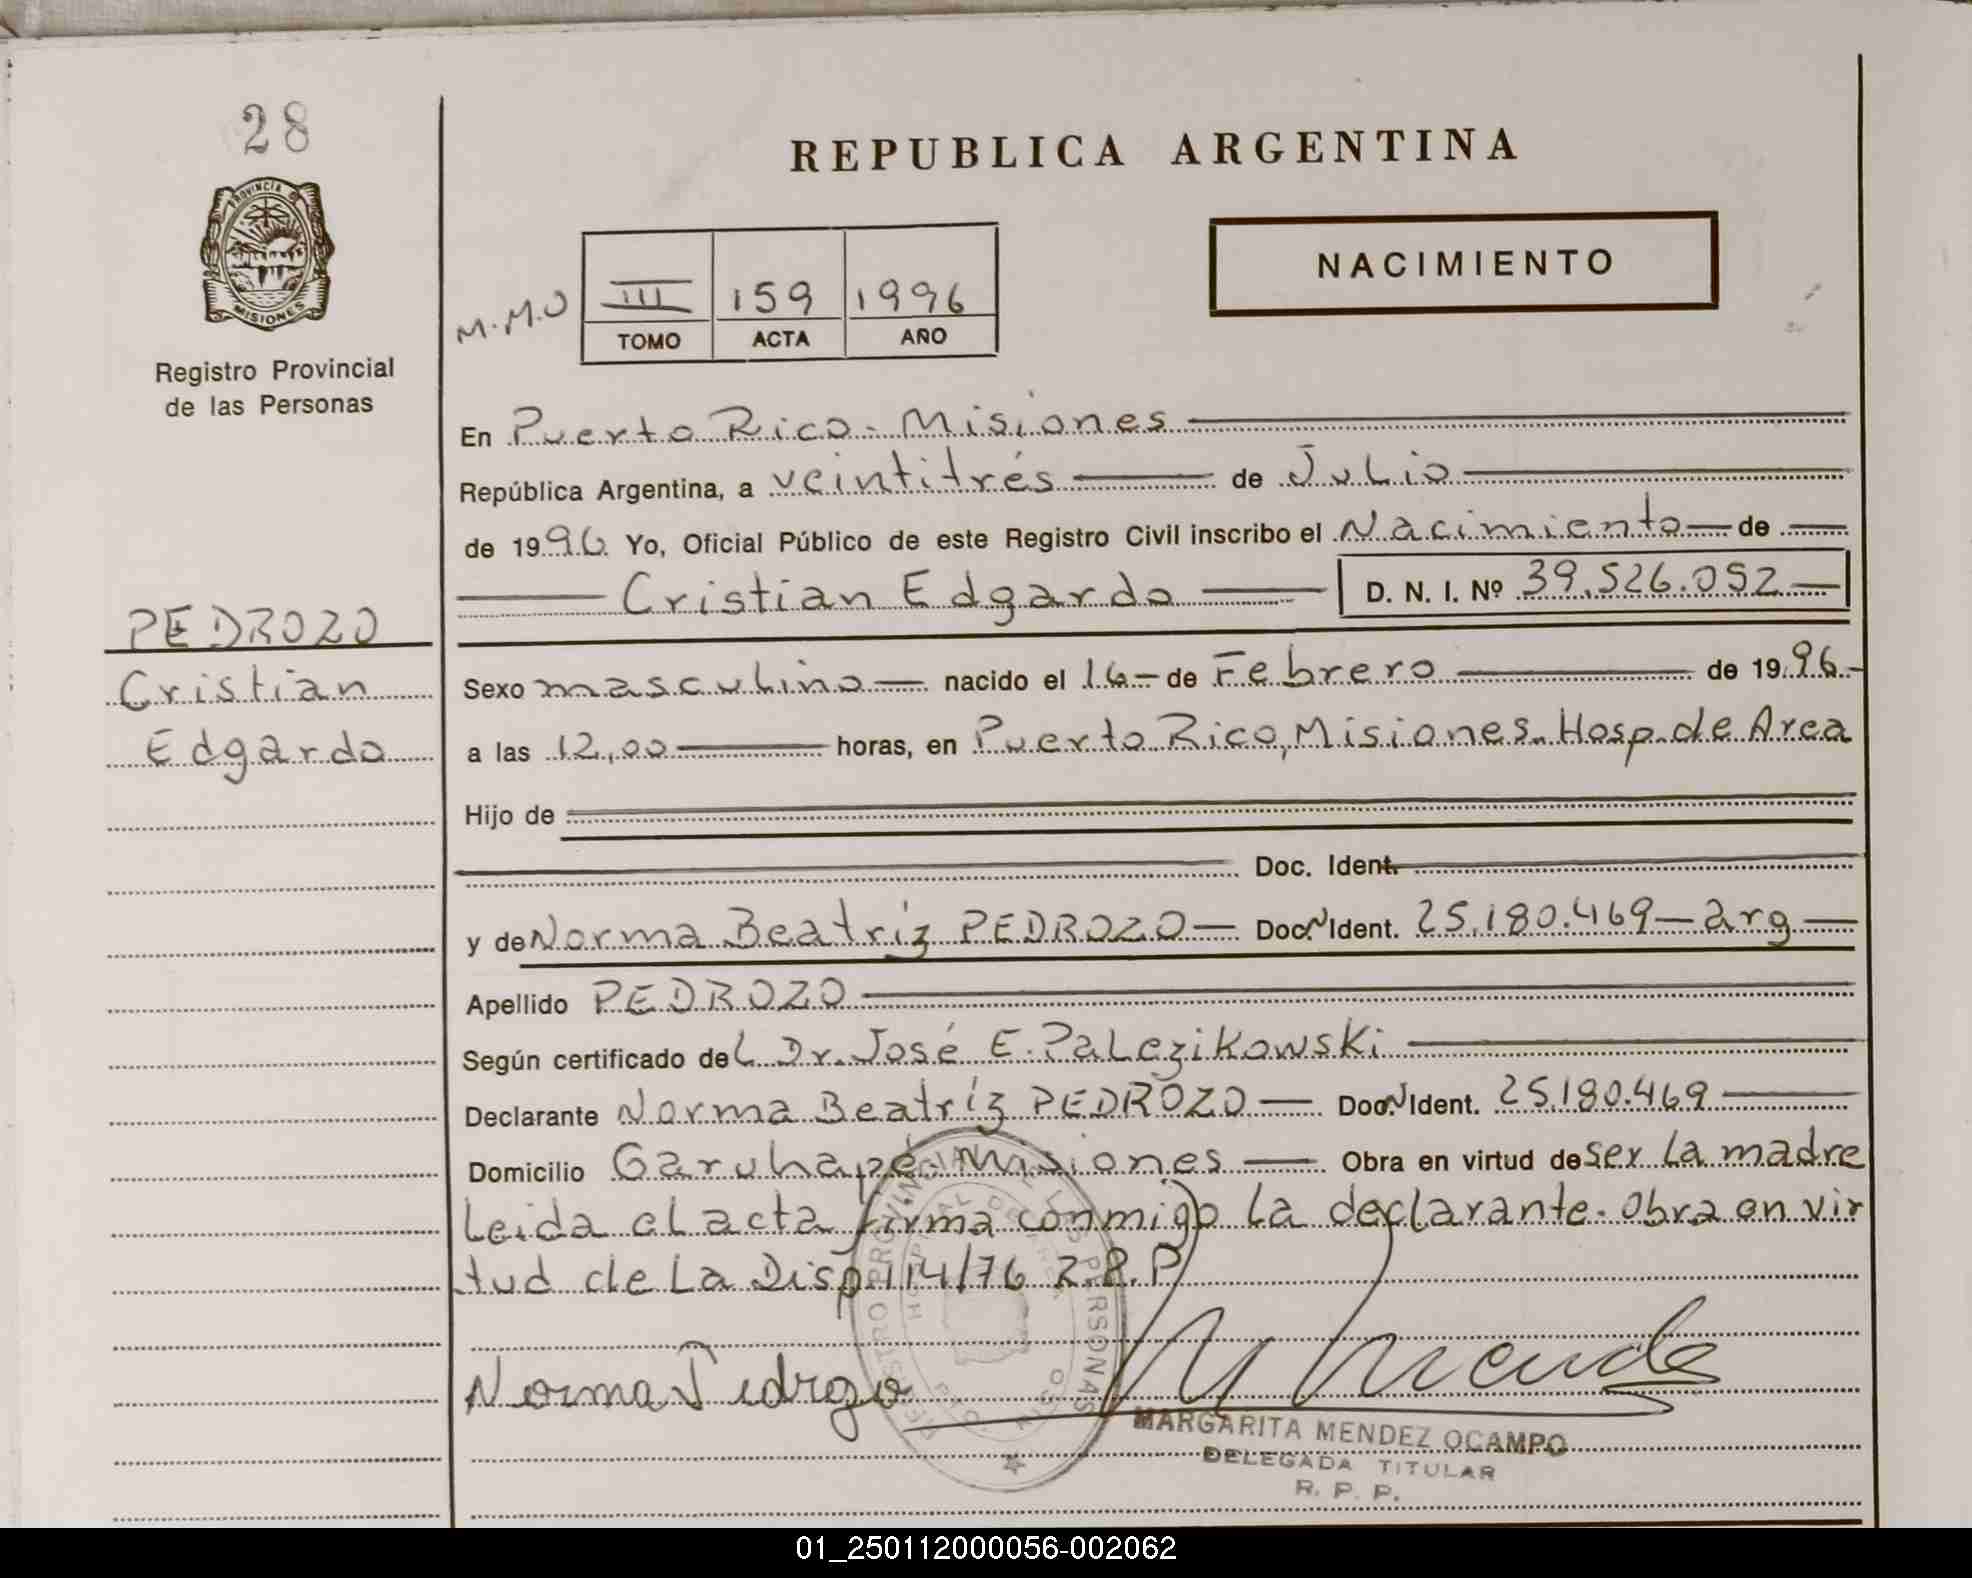 28
REPUBLICA ARGENTINA
PROVINCIA DE
MISIONES
Registro Provincial
de las Personas
NACIMIENTO
M.M.O
III 159 1996
TOMO ACTA AÑO
En Puerto Rico - Misiones
República Argentina, a veintitrés de Julio
de 1996 Yo, Oficial Público de este Registro Civil inscribo el Nacimiento de
Cristian Edgardo D. N. I. Nº 39.526.052
PEDROZO
Cristian
Edgardo
Sexo masculino nacido el 16 de Febrero de 1996
a las 12,00 horas, en Puerto Rico, Misiones. Hosp. de Area
Hijo de
Doc. Ident.
y de Norma Beatríz PEDROZO Doc. N Ident. 25.180.469 - arg
Apellido PEDROZO
Según certificado del Dr. José E. Palezikowski
Declarante Norma Beatríz PEDROZO Doc. N Ident. 25.180.469
Domicilio Garuhapé - Misiones Obra en virtud de ser la madre
Leida el acta firma conmigo la declarante. Obra en vir
tud de La Disp. 114/76 R.P.P
Norma Pedrozo
MARGARITA MENDEZ OCAMPO
DELEGADA TITULAR
R. P. P.
01_250112000056-002062